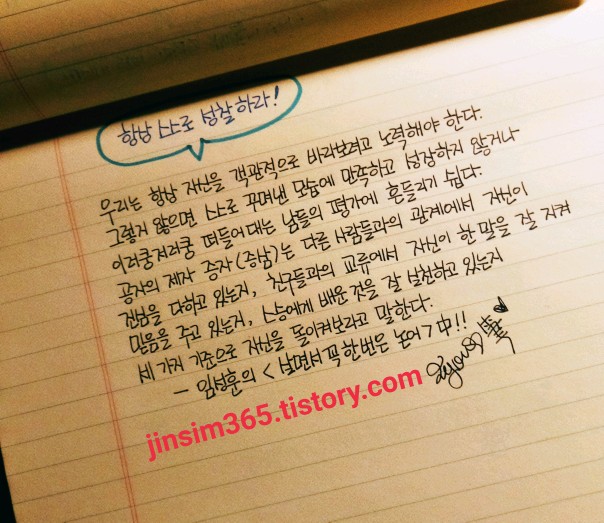 항상 스스로 성찰하라!
우리는 항상 자신을 객관적으로 바라보려고 노력해야 한다.
그렇게 않으면 스스로 꾸며낸 모습에 만족하고 성장하지 않거나
이러쿵저러쿵 떠들어대는 남들의 평가에 흔들리기 쉽다.
공자의 제자 증자(증남)는 다른 사람들과의 관계에서 자신이
진범을 다하고 있는지, 친구들과의 교류에서 자신이 한 말을 잘 지켜
믿음을 주고 있는지, 스승에게 배운 것을 잘 실천하고 있는지
세 가지 기준으로 자신을 돌이켜보라고 말한다.
- 임성훈의 <살면서 꼭 한번은 논어> 中!!
jinsim365.tistory.com